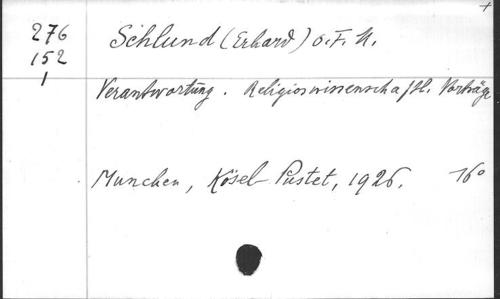 276 Schlund (Erhard) O.F.M.
152
1 Verantwortung. Religioswissenschaftl. Vorträge
Munchen, Kösel-Pustet, 1926. 16°